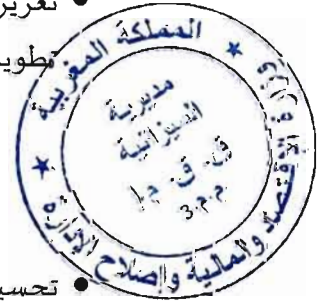 • تعزيز
تطوير
المملكة المغربية
وزارة الاقتصاد والمالية وإصلاح الإدارة
مديرية
الميزانية
ق. ق. م.1
م.م.3
• تحسي